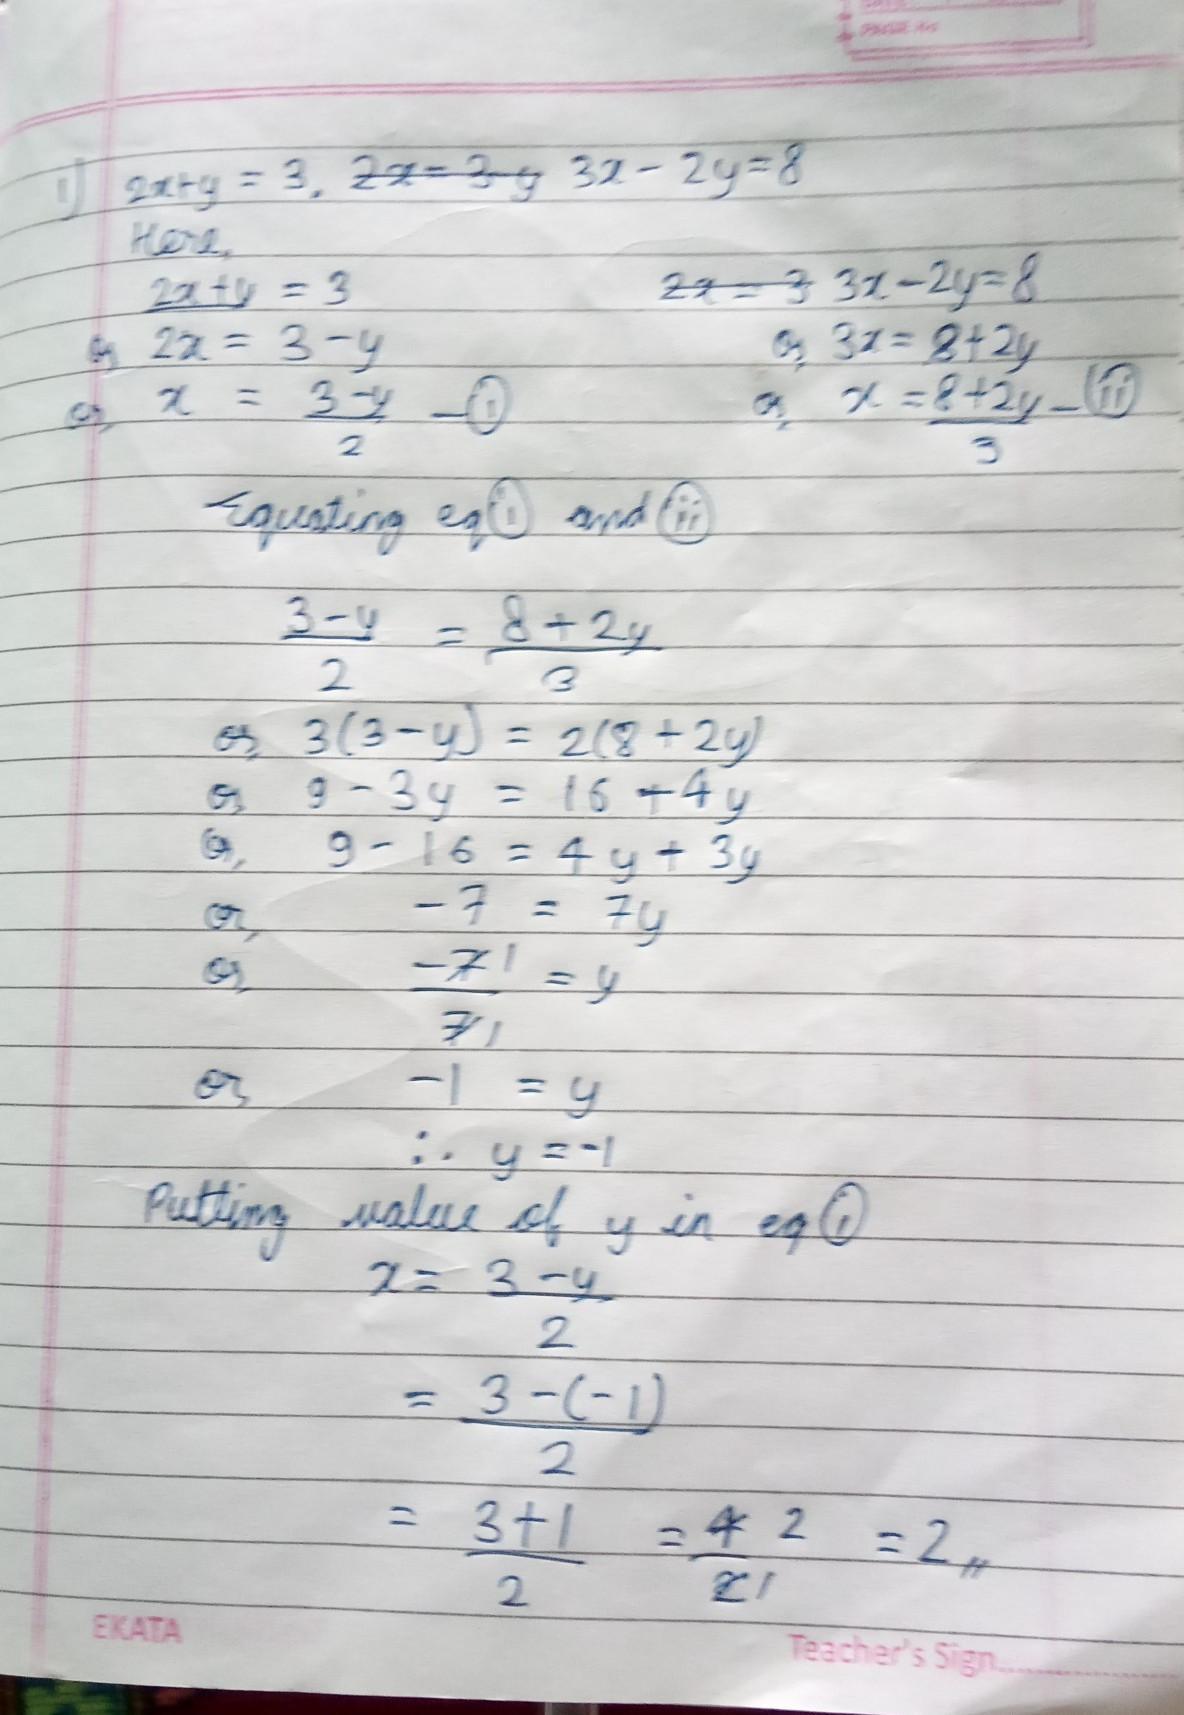 PAGE No
1) 2x+y = 3, 2x = 3-y 3x - 2y = 8
Here,
2x+y = 3
or, 2x = 3 - y
or, x = 3-y/2 - (i)
2x = 3 3x - 2y = 8
or, 3x = 8+2y
or, x = 8+2y/3 - (ii)
Equating eq (i) and (ii)
3-y/2 = 8+2y/3
or, 3(3-y) = 2(8+2y)
or, 9 - 3y = 16 + 4y
or, 9 - 16 = 4y + 3y
or, -7 = 7y
or, -7 1/7 1 = y
or, -1 = y
∴ y = -1
Putting value of y in eq (i)
x = 3-y/2
= 3-(-1)/2
= 3+1/2 = 4 2/2 1 = 2,,
EKATA
Teacher's Sign..................